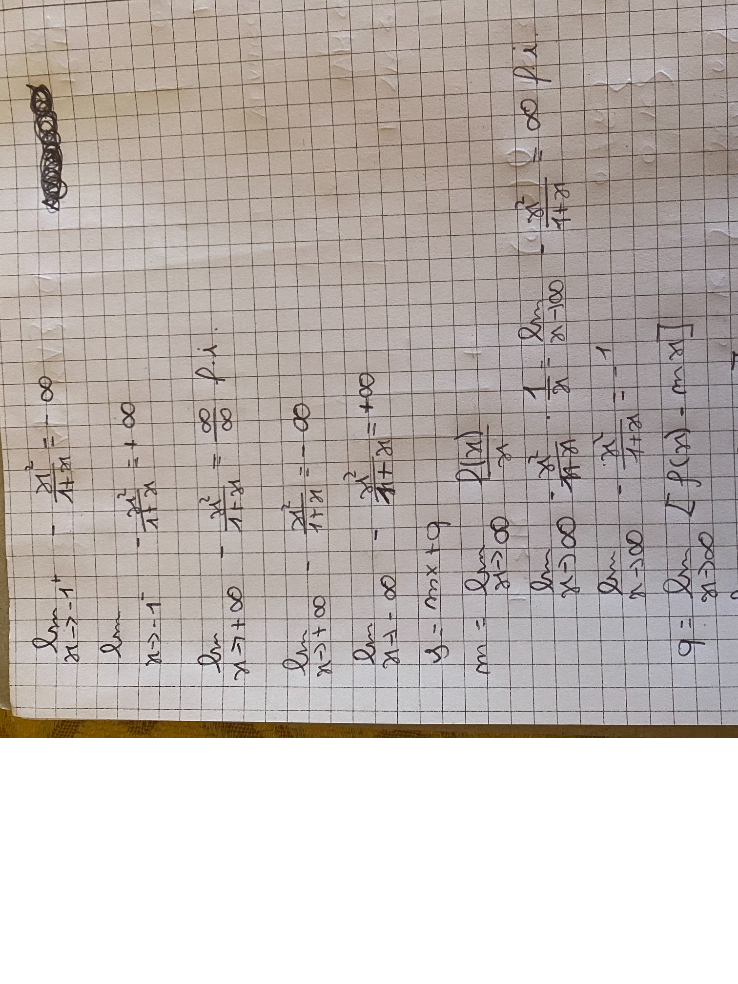 lim x→-1⁺ - x²/(1+x) = -∞
lim x→-1⁻ - x²/(1+x) = +∞
lim x→+∞ - x²/(1+x) = ∞/∞ f.i.
lim x→+∞ - x²/(1+x) = -∞
lim x→-∞ - x²/(1+x) = +∞
y = mx+q
m = lim x→∞ f(x)/x
lim x→∞ - x²/(1+x) · 1/x = lim x→∞ - x²/(1+x) = ∞ f.i.
lim x→∞ - x²/(1+x) = -1
q = lim x→∞ [f(x) - mx]